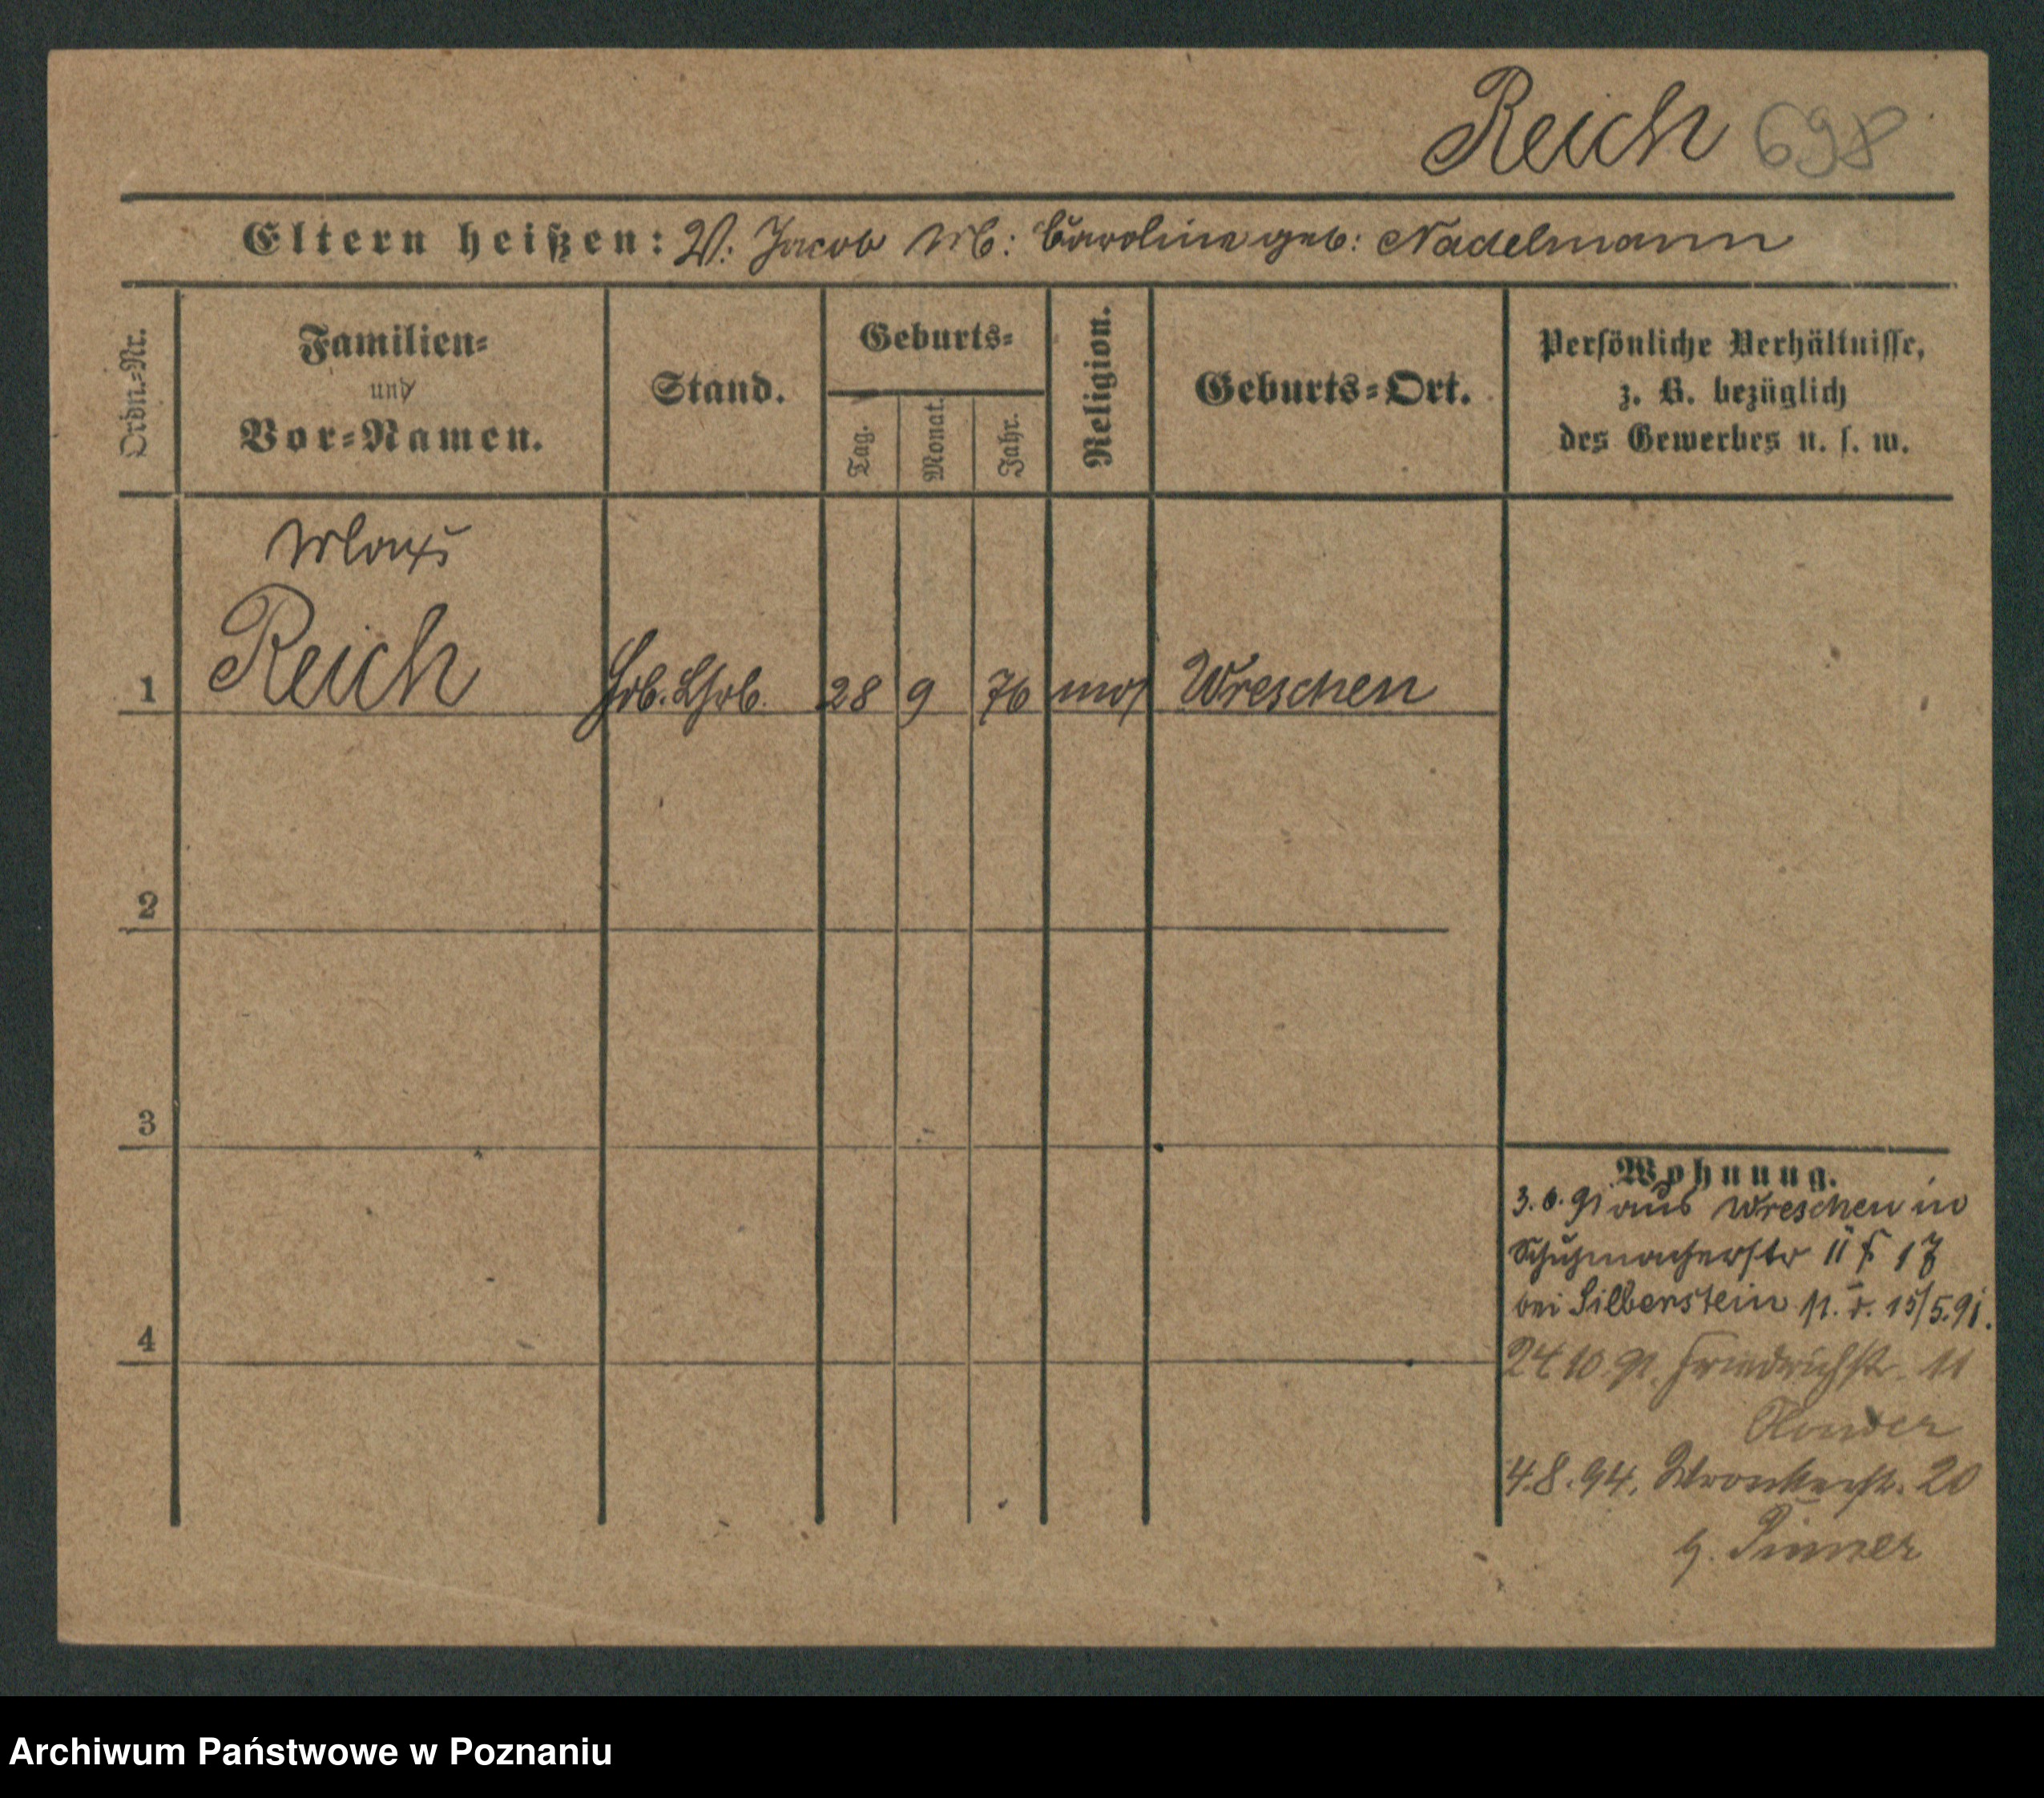 Reich 698
Eltern heißen: V: Jacob M: Caroline geb: Nadelmann
Ordn.-Nr.
Familien-
und
Vor-Namen.
Stand.
Geburts-
Tag.
Monat.
Jahr.
Religion.
Geburts-Ort.
Persönliche Verhältnisse,
z. B. bezüglich
des Gewerbes u. s. w.
Max
1 Reich 28 9 76 mos Wreschen
2
3
4
Wohnung.
3.6.91 aus Wreschen in
Schuhmacherstr 17
bei Silberstein 15/5.91.
24 10 91. Friedrichstr. 11
4.8.94. Wronkerstr. 20
Pinner
Archiwum Państwowe w Poznaniu